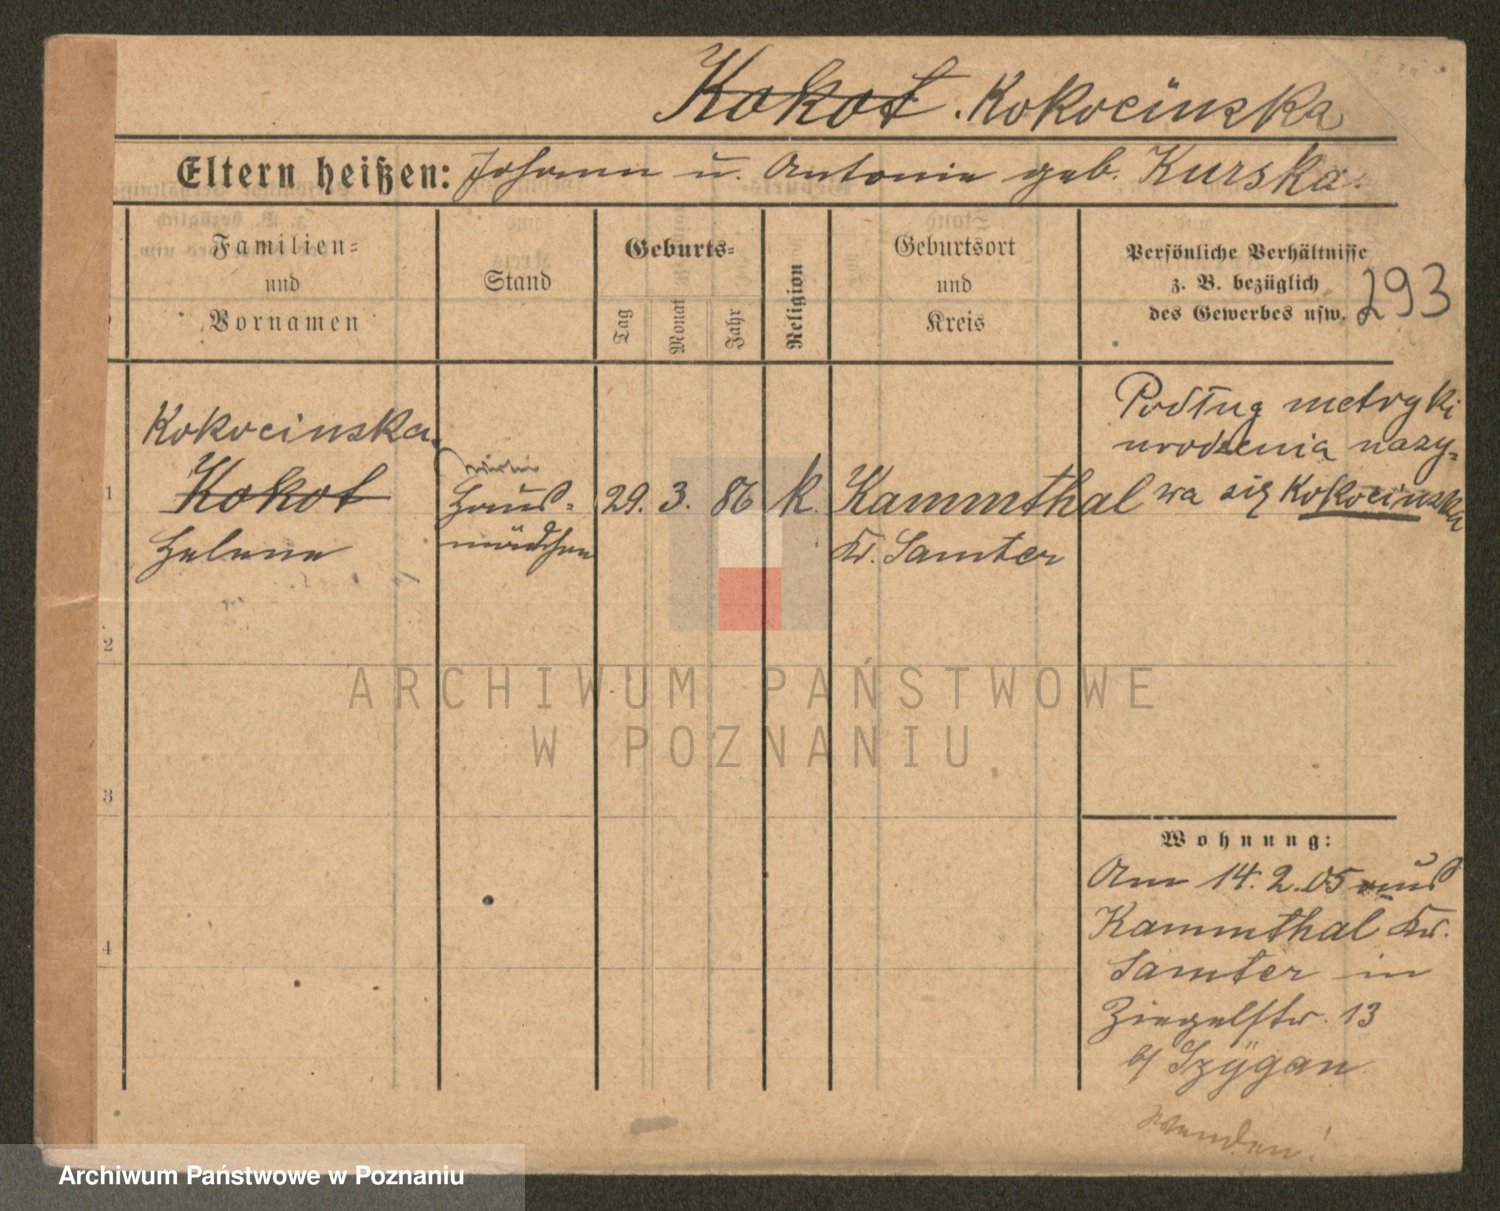 Kokot. Kokocinska
Eltern heißen: Johann u. Antonie geb. Kurska.
Familien=
und
Vornamen
Stand
Geburts=
Tag
Monat
Jahr
Religion
Geburtsort
und
Kreis
Persönliche Verhältnisse
z. B. bezüglich
des Gewerbes usw.
293
1
Kokocinska
Kokot
Helene
Haus-
mädchen
29. 3. 86
k.
Kammthal
Kr. Samter
Podług metryki
urodzenia nazy-
wa się Kokocinska
2
3
4
Wohnung:
Am 14. 2. 05 aus
Kammthal Kr.
Samter in
Ziegelstr. 13
b/ Szÿgan
wenden!
ARCHIWUM PAŃSTWOWE
W POZNANIU
Archiwum Państwowe w Poznaniu